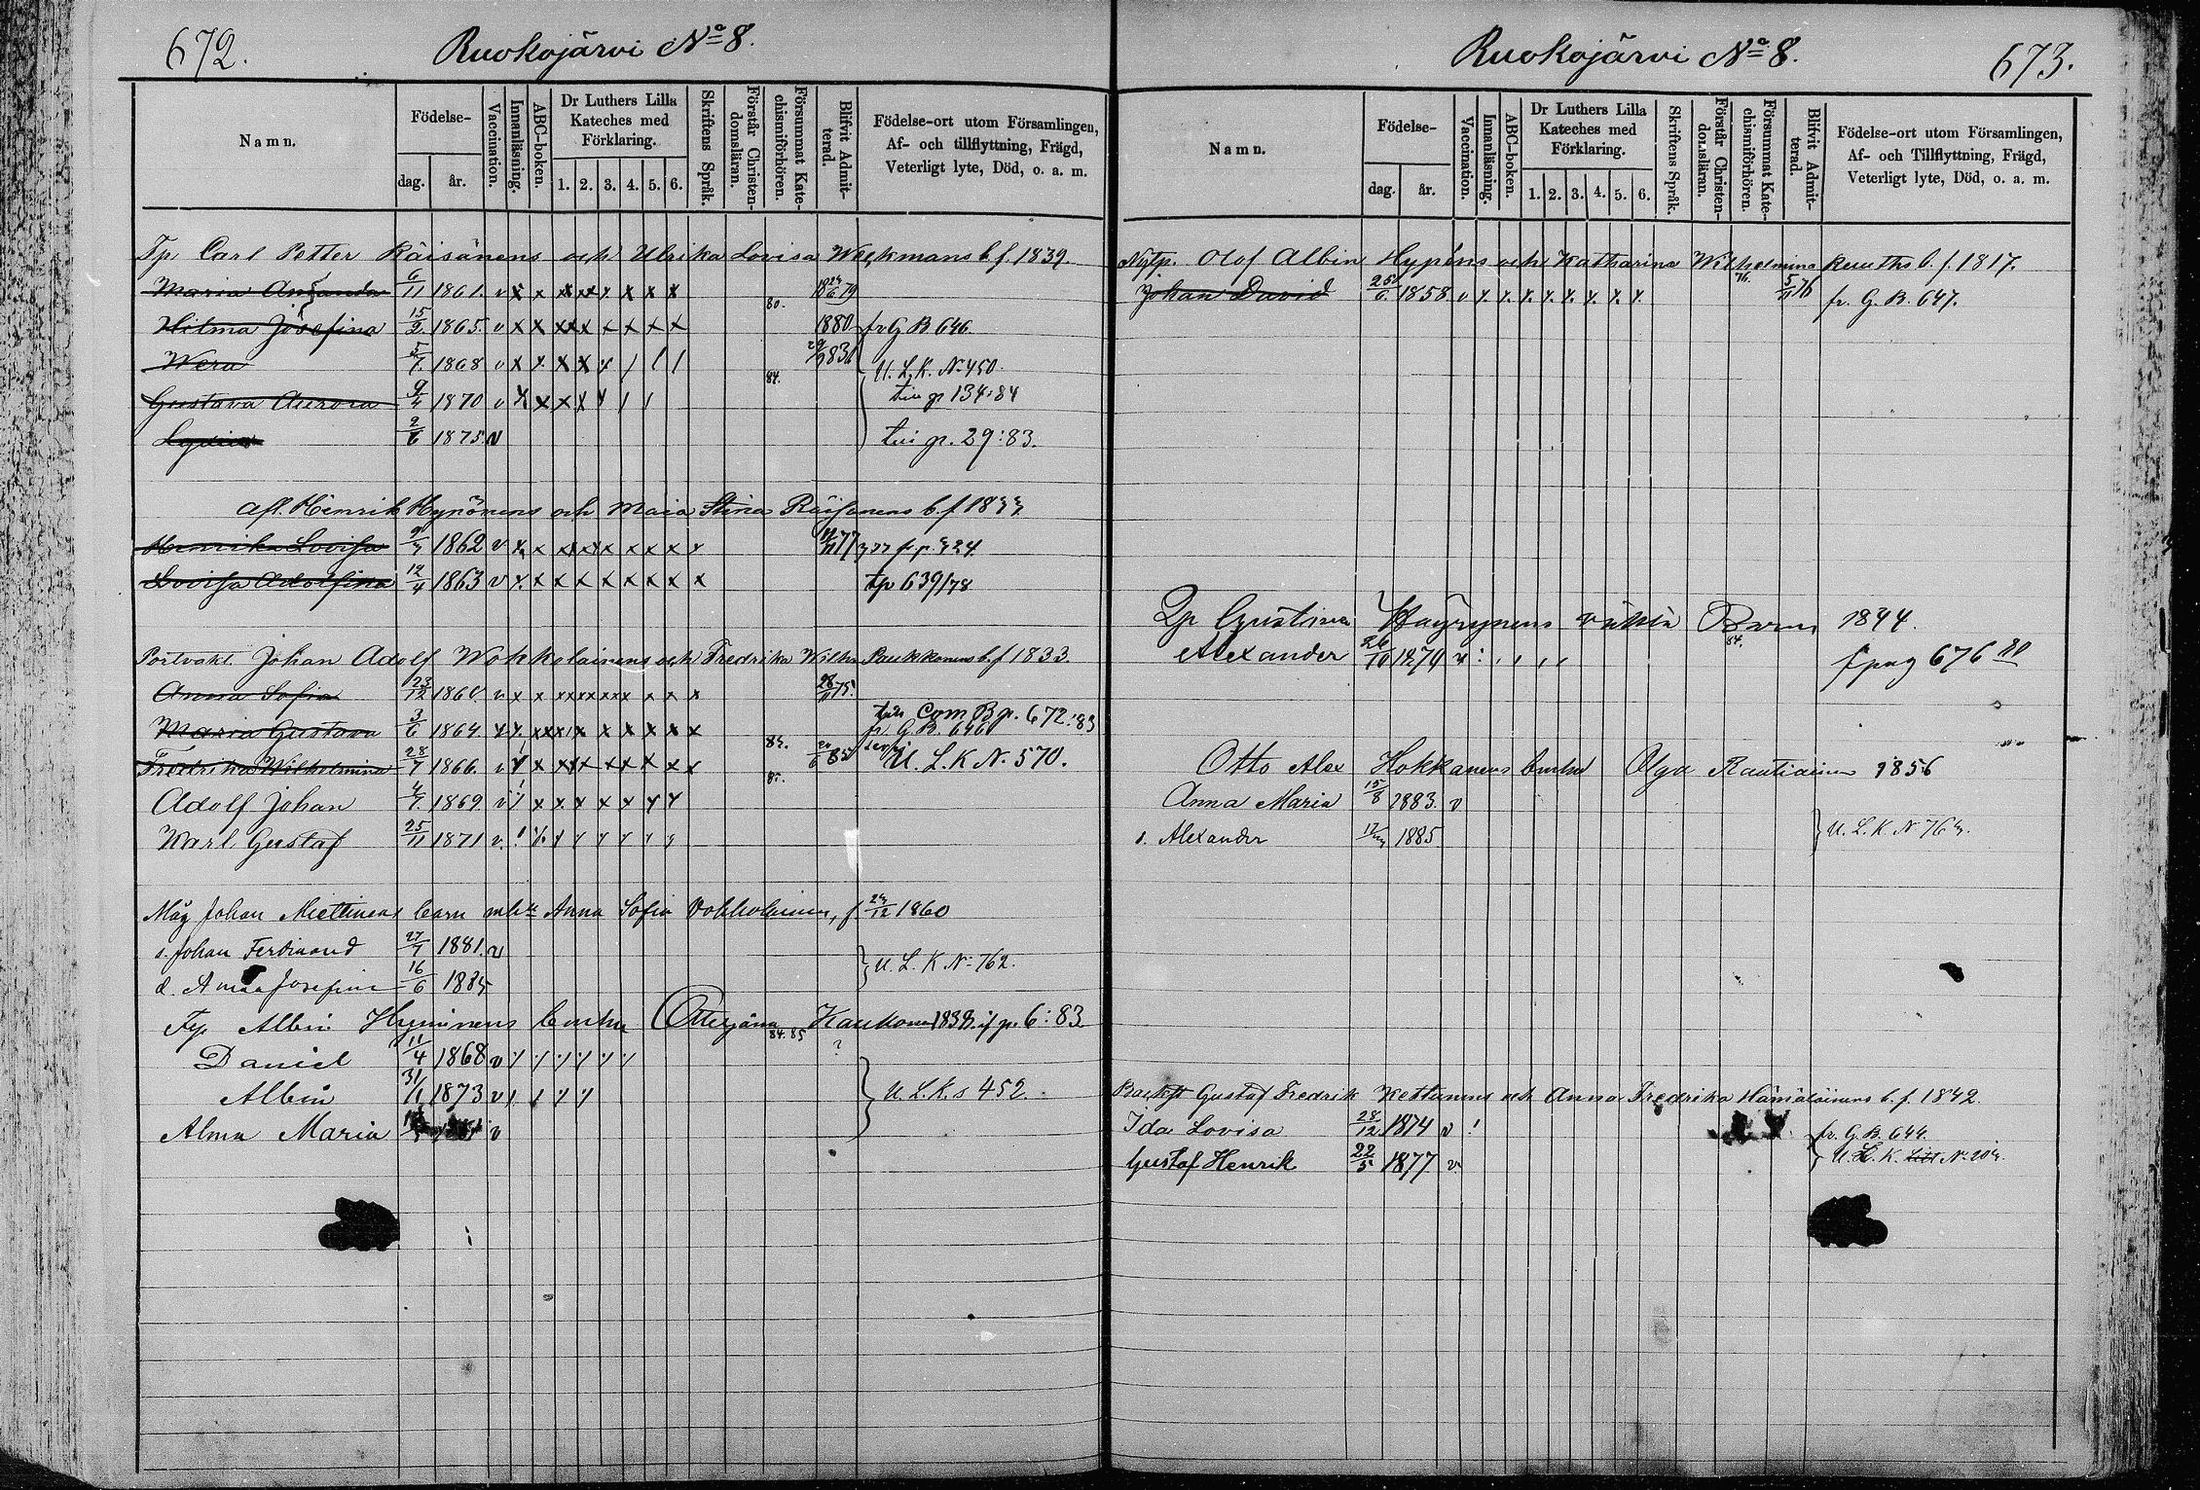 672.
Ruokojärvi No 8.
Namn.
Födelse-
dag.
år.
Vaccination.
Innanläsning.
ABC-boken.
Dr Luthers Lilla
Kateches med
Förklaring.
1. 2. 3. 4. 5. 6.
Skriftens Språk.
Förstår Christen-
domsläran.
Försummat Kate-
chismiförhören.
Blifvit Admit-
terad.
Födelse-ort utom Församlingen,
Af- och tillflyttning, Frägd,
Veterligt lyte, Död, o. a. m.
Tp. Carl Petter Räisänens och Ulrika Lovisa Weckmans b. f. 1839.
Maria Amanda 6/11 1861. v x x x x x x x x
80.
Hilma Josefina 15/2 1865. v x x x x x x x x 1880 fr G B 646.
Wera 5/7 1868 v x x x x U. L. K. N. 450.
84.
Gustava Aurora 9/4 1870 v x x x x 134:84
2/6 1875 v gp. 29:83.
Afl. Henrik Hypönens och Maia Stina Räisänens b. f 1833
Henrika Lovisa 9/7 1862 v x x x x x x x x
Lovisa Adolfina 12/4 1863 v x x x x x x x x x tp 639/78
Johan Adolf Wokkolainens och Fredrika Wilhna Paukkonens b. f 1833.
Anna Sofia 23/12 1860. v x x x x x x x x x 28/11 75.
Com B p. 672:83
Maria Gustava 3/6 1864. x x x x x x x x x fr G. B. 646
Fredrika Wilhelmina 28/7 1866. v x x x x x x x x 85 U. L. K N. 570.
Adolf Johan 4/7 1869 v x x x x x x x
Karl Gustaf 25/11 1871 v
Måg Johan Miettinens barn m h Anna Sofia Vokkolainen, f 23/12 1860
s. Johan Ferdinand 27/7 1881. v
U. L. K No 762.
d. Anna Josefina 16/6 1885
Tp. Albin Hyninens
84. 85
6:83
Daniel 11/4 1868 v
Albin 31/1 1873 v U. L. K. s 452
Alma Maria v
Ruokojärvi No 8.
673.
Namn.
Födelse-
dag.
år.
Vaccination.
Innanläsning.
ABC-boken.
Dr Luthers Lilla
Kateches med
Förklaring.
1. 2. 3. 4. 5. 6.
Skriftens Språk.
Förstår Christen-
domsläran.
Försummat Kate-
chismiförhören.
Blifvit Admit-
terad.
Födelse-ort utom Församlingen,
Af- och Tillflyttning, Frägd,
Veterligt lyte, Död, o. a. m.
Olof Albin Hypéns och Katharina Wilhelmina b. f. 1817.
Johan David 1858 v x x x x x x x x 76. 5/11 76 fr. G. B. 647.
Gustava Häyrynens oäkta Barn 1844.
84.
Alexander 26/10 1879 v fpag 676 80
Otto Alex Hokkanens Olga Rautiainen 1856
Anna Maria 15/8 1883. v
s. Alexander 1885 U. L. K N 764.
Gustaf Fredrik Kettunens och Anna Fredrika Hämäläinens b. f. 1842.
Ida Lovisa 28/12 1874 v ! fr. G. B. 644.
Gustaf Henrik 22/5 1877 v U. L. K.